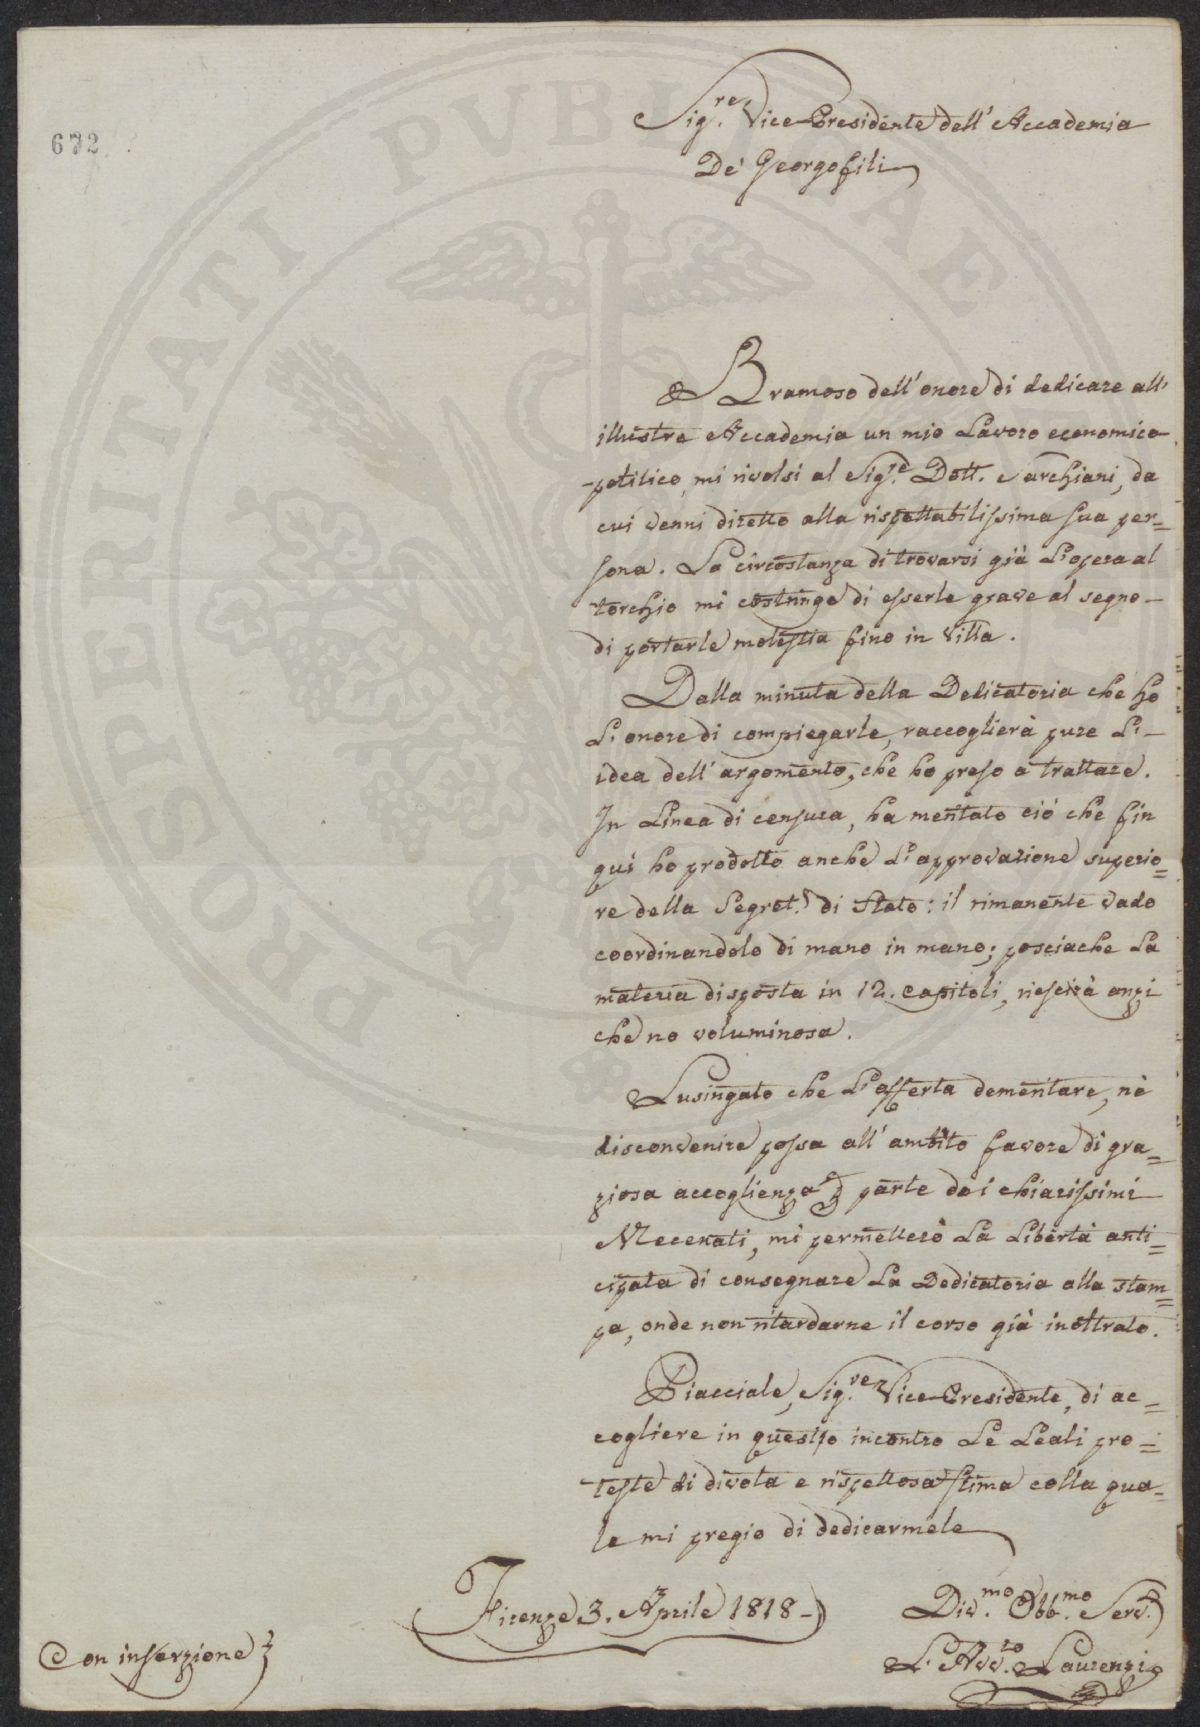 672
Sig.re Vice-Presidente dell'Accademia
De' Georgofili
Bramoso dell'onore di dedicare all'
illustre Accademia un mio Lavoro economico-
-politico, mi rivolsi al Sig.re Dott. Sarchiani, da
cui venni diretto alla rispettabilissima sua per=
sona. La circostanza di trovarsi già L'opera al
torchio mi costringe di esserle grave al segno-
di portarle molestia fino in Villa.
Dalla minuta della Dedicatoria che ho
L'onore di compiegarle, raccoglierà pure L'-
idea dell'argomento, che ho preso a trattare.
In Linea di censura, ha meritato ciò che fin
quì ho prodotto anche L'approvazione superio=
re della Segret.a di Stato: il rimanente vado
coordinandolo di mano in mano; posciache La
materia disposta in 12. Capitoli, riescirà anzi
che no voluminosa.
Lusingato che L'offerta demeritare, nè
disconvenire possa all'ambito favore di gra=
ziosa accoglienza parte dei chiarissimi
Mecenati, mi permetterò La Libertà anti=
cipata di consegnare La Dedicatoria alla stam=
pa, onde non ritardarne il corso già inoltrato.
Piacciale, Sig.re Vice-Presidente, di ac=
cogliere in questo incontro Le Leali pro=
teste di divota e rispettosa stima colla qua=
le mi pregio di dedicarmele
Firenze 3. Aprile 1818-
Div.mo Obb.mo Serv.
L'Avv.to Laurenzi
Con inserzione
PROSPERITATI PUBLICAE